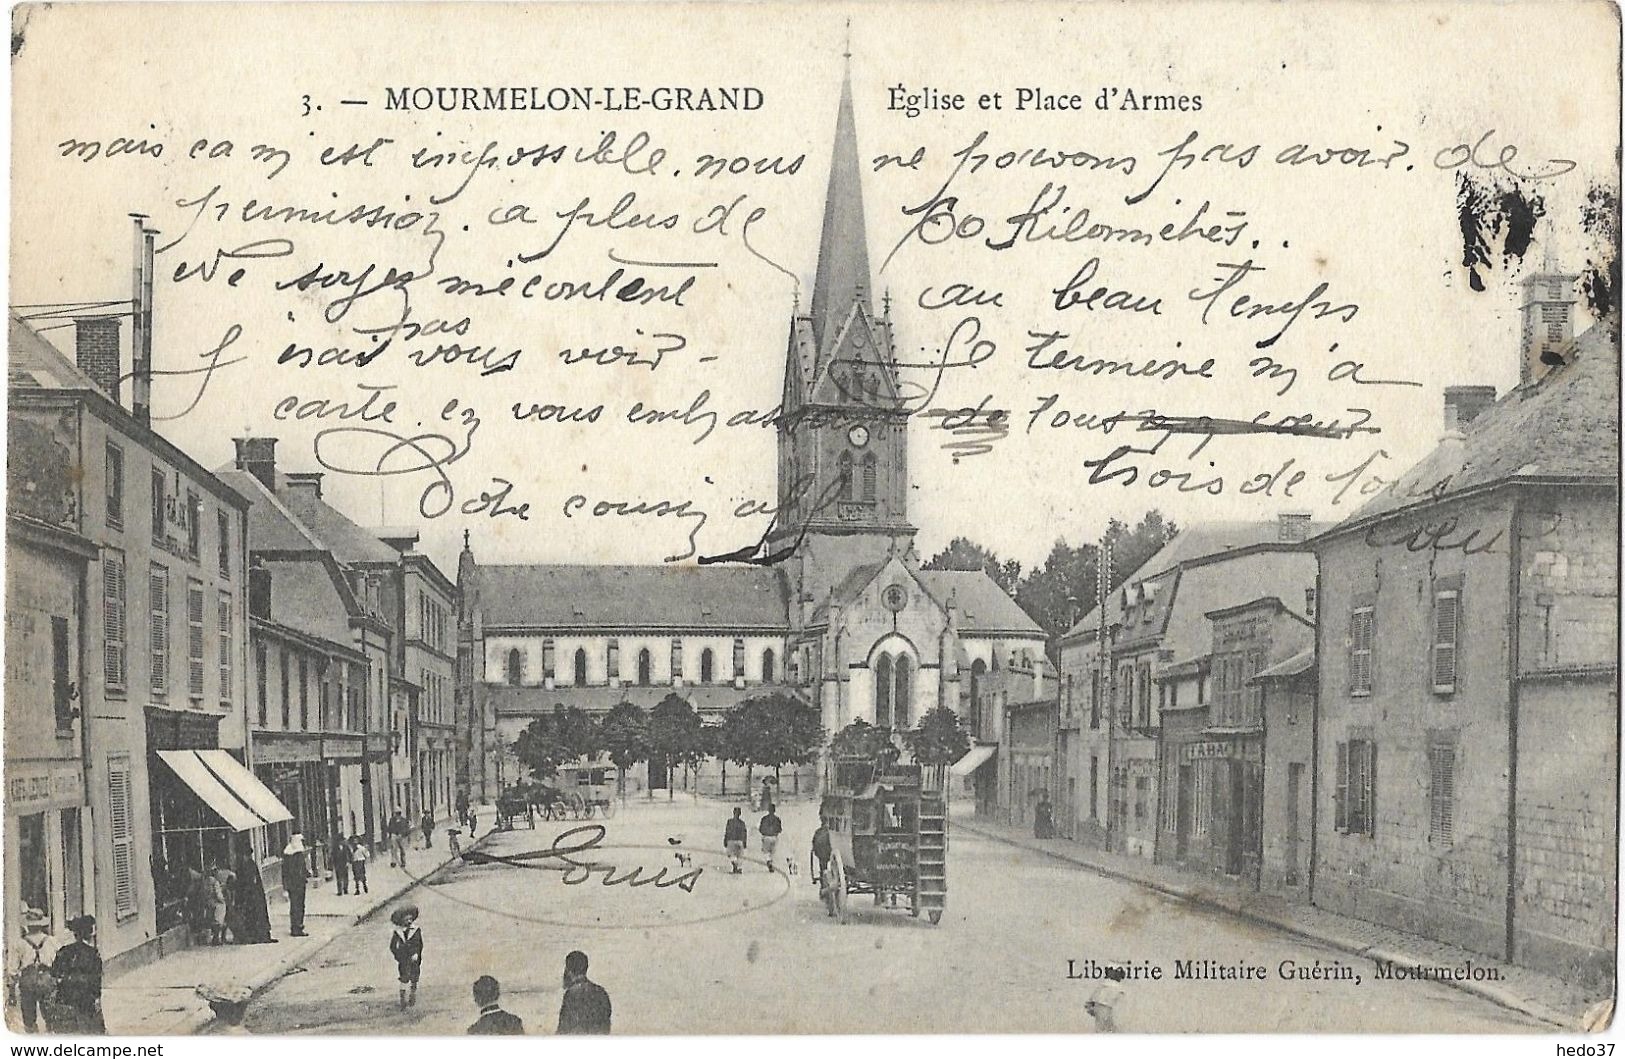 3. — MOURMELON-LE-GRAND Église et Place d'Armes
mais ca m'est impossible. nous ne pouvons pas avoir. de
permission. a plus de 60 Kilomichés..
Ne soyez mécontent au beau temps
pas
J'irai vous voir - Je termine m'a
carte. en vous embrassant de tous mon cœur
trois de tous
Votre cousin cœur
Louis
TABAC
Librairie Militaire Guérin, Mourmelon.
www.delcampe.net
hedo37